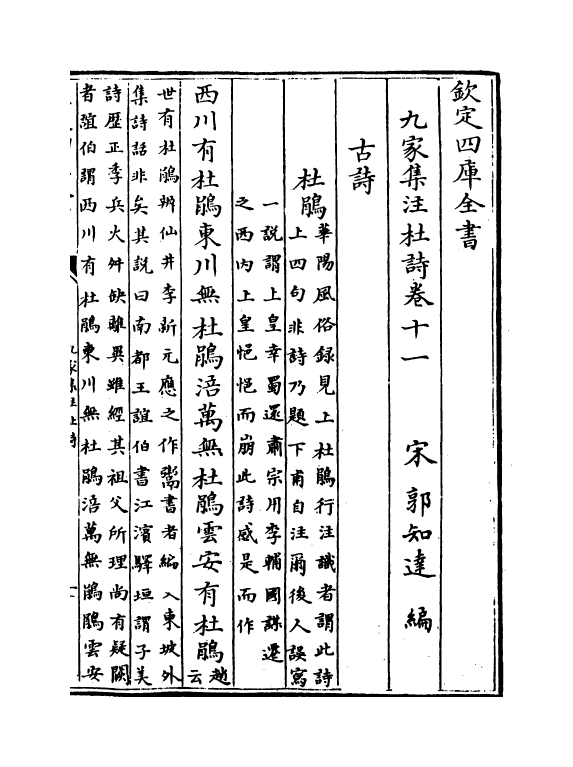 欽定四庫全書
九家集注杜詩卷十一
宋 郭知達 編
古詩
杜鵑
華陽風俗録見上杜鵑行注識者謂此詩
上四句非詩乃題下甫自注爾後人誤寫
一説謂上皇幸蜀還肅宗用李輔國謀遷
之西内上皇悒悒而崩此詩感是而作
西川有杜鵑東川無杜鵑涪萬無杜鵑雲安有杜鵑
趙云
世有杜鵑辨仙井李新元應之作鬻書者編入東坡外
集詩話非矣其説曰南都王誼伯書江濱驛垣謂子美
詩歴正季兵火舛缺離異雖經其祖父所理尚有疑闕
者誼伯謂西川有杜鵑東川無杜鵑涪萬無鵑鵑雲安
九家集注杜詩
一